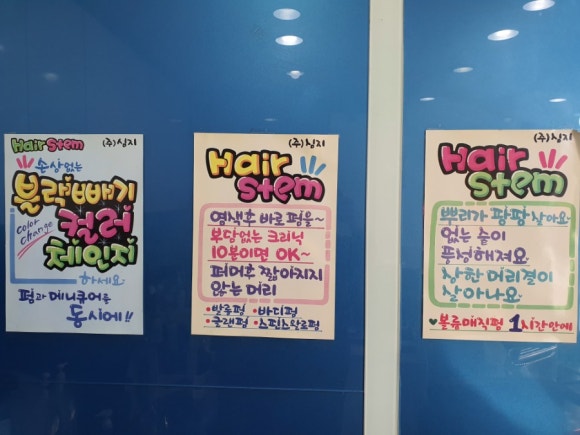 Hair Stem
(주)심지
손상없는
블랙빼기
Color Change
컬러
체인지
하세요
펌과 메니큐어를
동시에!!
(주)심지
Hair
Stem
염색후 바로 펌을~
부담없는 크리닉
10분이면 OK~
퍼머후 짧아지지
않는 머리
•발롱펌 •바디펌
(주)심지
Hair
Stem
뿌리가 팡팡 살아요
없는 숱이
풍성해져요
상한 머리결이
살아나요
♥볼륨매직펌 1시간안에